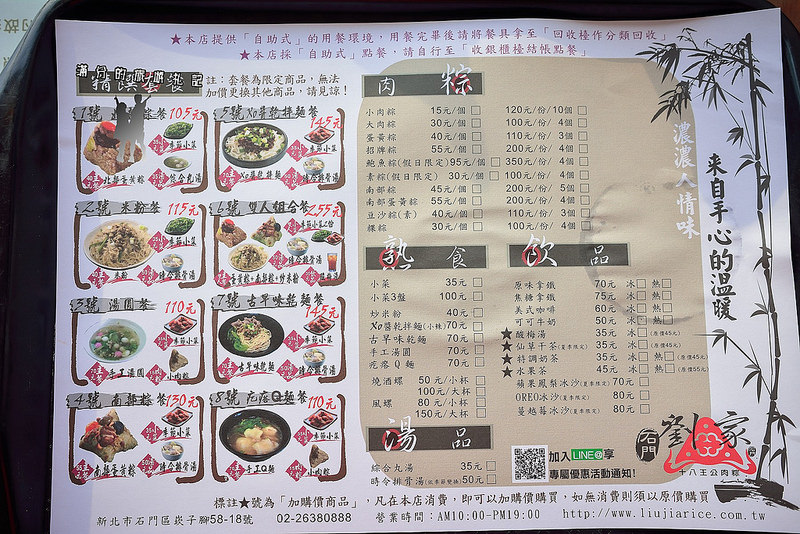 ★本店提供「自助式」的用餐環境，用餐完畢後請將餐具拿至「回收檯作分類回收」
★本店採「自助式」點餐，請自行至「收銀櫃檯結帳點餐」
註：套餐為限定商品，無法
加價更換其他商品，請見諒！
1號 105元
季節小菜
北部蛋黃粽
綜合丸湯
2號 米粉餐 115元
季節小菜
米粉
3號 湯圓餐 110元
季節小菜
手工湯圓
小肉粽
4號 南部粽餐 130元
季節小菜
南部蛋黃粽
5號 XO醬乾拌麵餐 145元
季節小菜
XO醬乾拌麵
6號 雙人組合餐 255元
蛋黃粽+南部粽+炒米粉
7號 古早味乾麵餐 145元
季節小菜
古早味乾麵
8號 疙瘩Q麵餐 110元
季節小菜
手工Q麵
小肉粽
肉粽
小肉粽 15元/個 120元/份/10個
大肉粽 30元/個 100元/份/ 4個
蛋黃粽 40元/個 110元/份/ 3個
招牌粽 55元/個 200元/份/ 4個
鮑魚粽(假日限定) 95元/個 350元/份/ 4個
素粽(假日限定) 30元/個 100元/份/ 4個
南部粽 45元/個 200元/份/ 5個
南部蛋黃粽 55元/個 200元/份/ 4個
豆沙粽(素) 40元/個 110元/份/ 3個
粿粽 30元/個 100元/份/ 4個
熟食
小菜 35元
小菜3盤 100元
炒米粉 40元
XO醬乾拌麵(小辣) 70元
古早味乾麵 70元
手工湯圓 70元
疙瘩Q麵 70元
燒酒螺 50元/小杯
100元/大杯
鳳螺 80元/小杯
150元/大杯
湯品
綜合丸湯 35元
時令排骨湯(依季節變換) 50元
飲品
原味拿鐵 70元 冰 熱
焦糖拿鐵 75元 冰 熱
美式咖啡 60元 冰 熱
可可牛奶 50元 冰 熱
★酸梅湯 35元 冰 (原價45元)
★仙草干茶(夏季限定) 35元 冰 熱 (原價45元)
★特調奶茶 35元 冰 熱 (原價45元)
★水果茶 45元 冰 熱 (原價55元)
蘋果鳳梨冰沙(夏季限定) 70元
OREO冰沙(夏季限定) 80元
蔓越莓冰沙(夏季限定) 80元
加入LINE@享
專屬優惠活動通知！
濃濃人情味
來自手心的溫暖
石門
劉家
十八王公肉粽
標註★號為「加購價商品」，凡在本店消費，即可以加購價購買，如無消費則須以原價購買
新北市石門區崁子腳58-18號 02-26380888 營業時間：AM10:00-PM19:00 http://www.liujiarice.com.tw